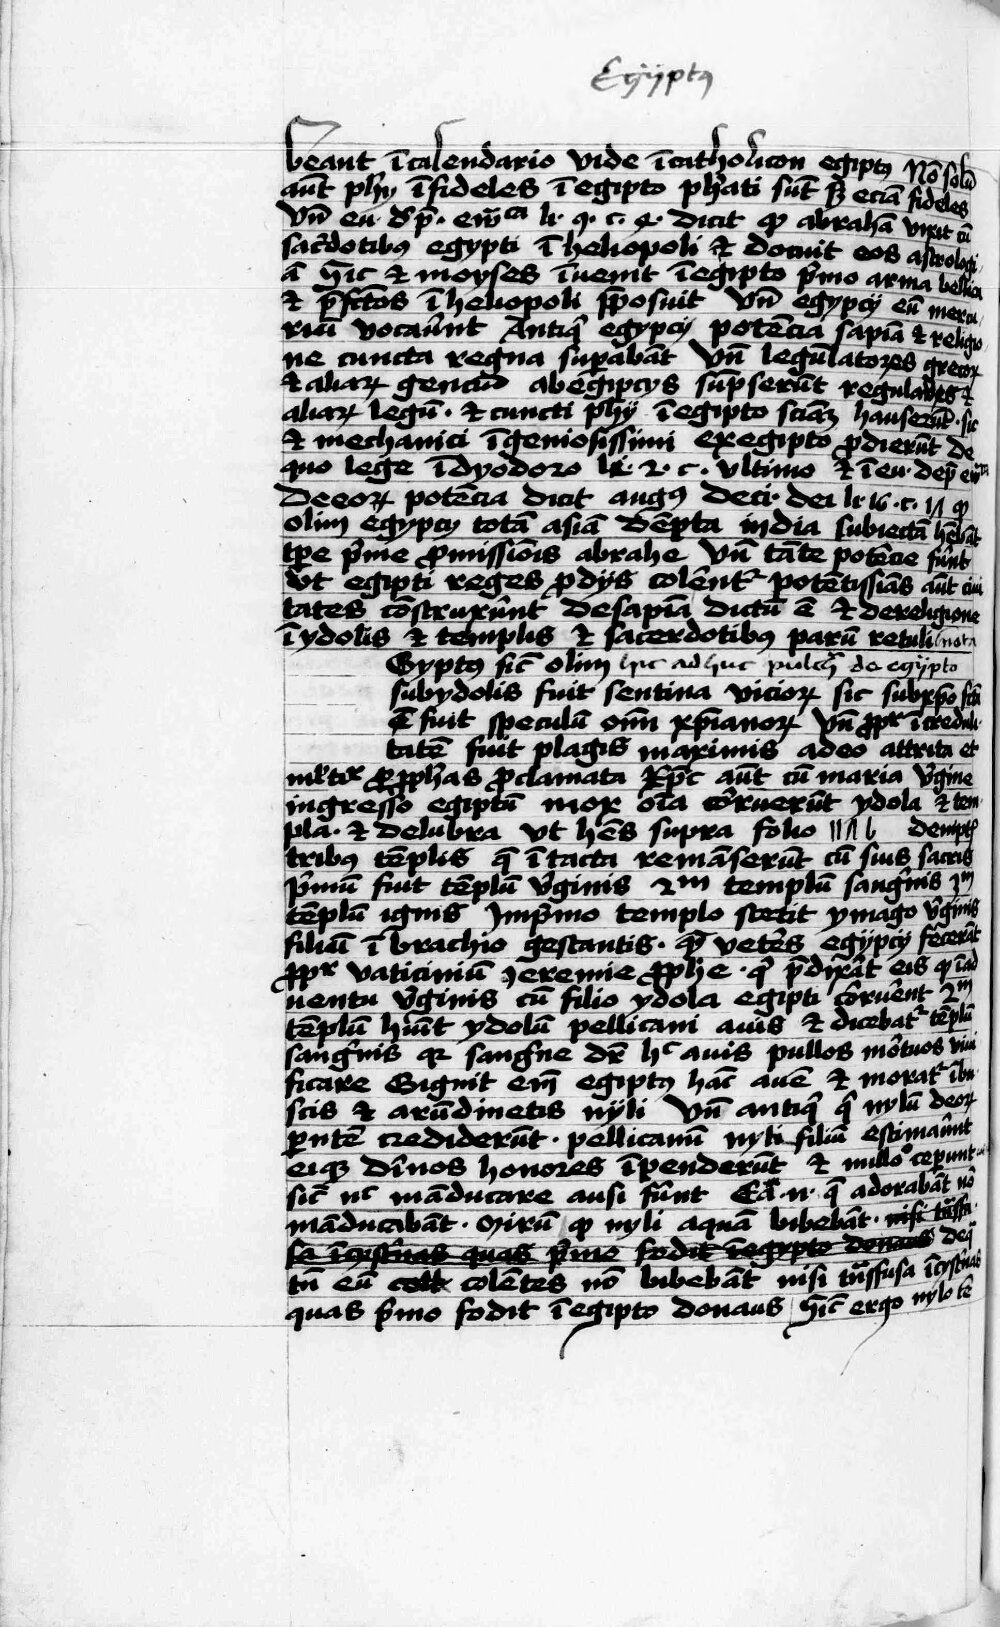 Egÿptꝯ
beant ī calendario vide ī catholicon egiptꝯ Nō solū
aūt ph̄ÿ īfideles ī egipto ph̄ati sūt Sꝫ eciā fideles
Vn̄ eu· d̄ p̄· em̄ca li· 9· c· 4· dicit ꝙ abrahā vixit cū
sac̄dotibꝯ egypti ī heliopoli et docuit eos astrologi
ā Hic et moyses īuenit ī egipto p̄mo arma bellica
et p̄fc̄tos ī heliopoli p̄posuit Vn̄ egypcÿ eū mercu
riū vocaūnt Antiqⁱ egypcÿ potēcia sapīa et religio
ne cuncta regna suꝑabāt Vn̄ legūlatores grecoꝝ
et aliaꝝ genciū ab egipcÿs sūpserūt regulas et
aliaꝝ legū· et cuncti ph̄ÿ ī egipto sciāꝫ hauserūt· sic
et mechanici īgeniosissimi ex egipto ꝓdierūt de
quo lege ī dyodoro li· 2· c· vltimo et ī eu· de p̄ em̄ca
De eoꝝ potēcia dicit augꝯ de ci· dei li· 16· c· 17 ꝙ
olim egypcÿ totā asiā dēpta india subiectā hēbāt
tp̄e p̄me ꝓmissiōis abrahe Vn̄ tāte potēcie fūnt
vt egipti reges ꝓ dÿs colēnt᷑ potētissīas aūt ciui
tates cōstruxūnt De sapīa dictū ē et de religione
ī ydolis et templis et sacerdotibꝯ parū retuli nota
Gyptꝯ sic̄ olim hic adhuc pulcʰ de egÿpto
sub ydolis fuit sentina vicioꝝ sic sub xp̄o fc̄ā
ē fuit speculū oīm xp̄ianoꝝ Vn̄ ꝓpt᷑ īcreduli
tatē fuit plagis maximis adeo attrita et
ml̄tix ꝓ ꝓph̄as ꝓclamata Xp̄c aūt cū maria v̄gine
ingresso egiptū mox oīa corruerūt ydola et tem
pla· et delubra vt hēs supra folio demptꝭ
tribꝯ tēplis q̄ ītacta remāserūt cū suis sacris
p̄mū fuit tēplū v̄ginis 2ᵐ templū sangⁱnis 3ᵐ
tēplū ignis In p̄mo templo stetit ymago v̄ginis
filiū ī brachio gestantis· quā veteres egÿpcÿ fēcerāt
ꝓpt᷑ vaticiniū Jeremie ꝓph̄e· qⁱ p̄dix̄at eis ꝙ ī ad
uentu v̄ginis cū filio ydola egipti corruēnt 2ᵐ
tēplū hūit ydolū pellicani auis et dicebat᷑ tēplū
sangⁱnis qꝛ sangⁱne dr̄ hᶜ auis pullos mōtuos viui
ficare Gignit em̄ egiptꝯ hāc auē et morat᷑ ī bu
scis et arūdinetis nÿli Vn̄ antiqⁱ qⁱ nylū deoꝝ
ꝑntē crediderūt· pellicanū nyli filiū estimaūnt
eiqꝫ diuīos honores īpenderūt et millo ceperunt
sic̄ nᶜ māducare ausi fūnt Eā· n· q̄ adorabāt nō
māducabāt· Mirū ꝙ nyli aquā bibebāt· nisi trāsfu
sa ī cystⁱnas quas p̄mo fodit ī egypto donaus deqᵃ
tn̄ eū colētes nō bibebāt nisi trāsfusa ī cystⁱnas
quas p̄mo fodit ī egipto donaus Hic ergo nylo tē